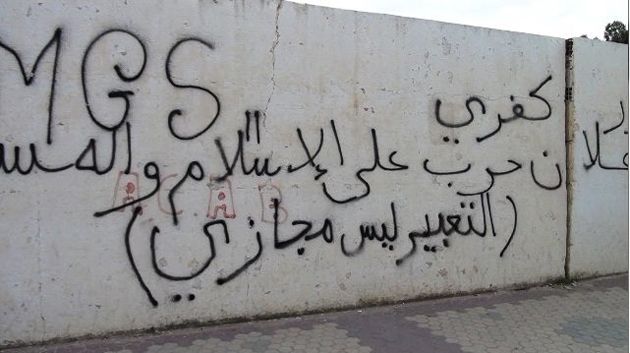 MGS
كفري
علان حرب على الإسلام والمس
(التعبير ليس مجازي)
A.C.A.B